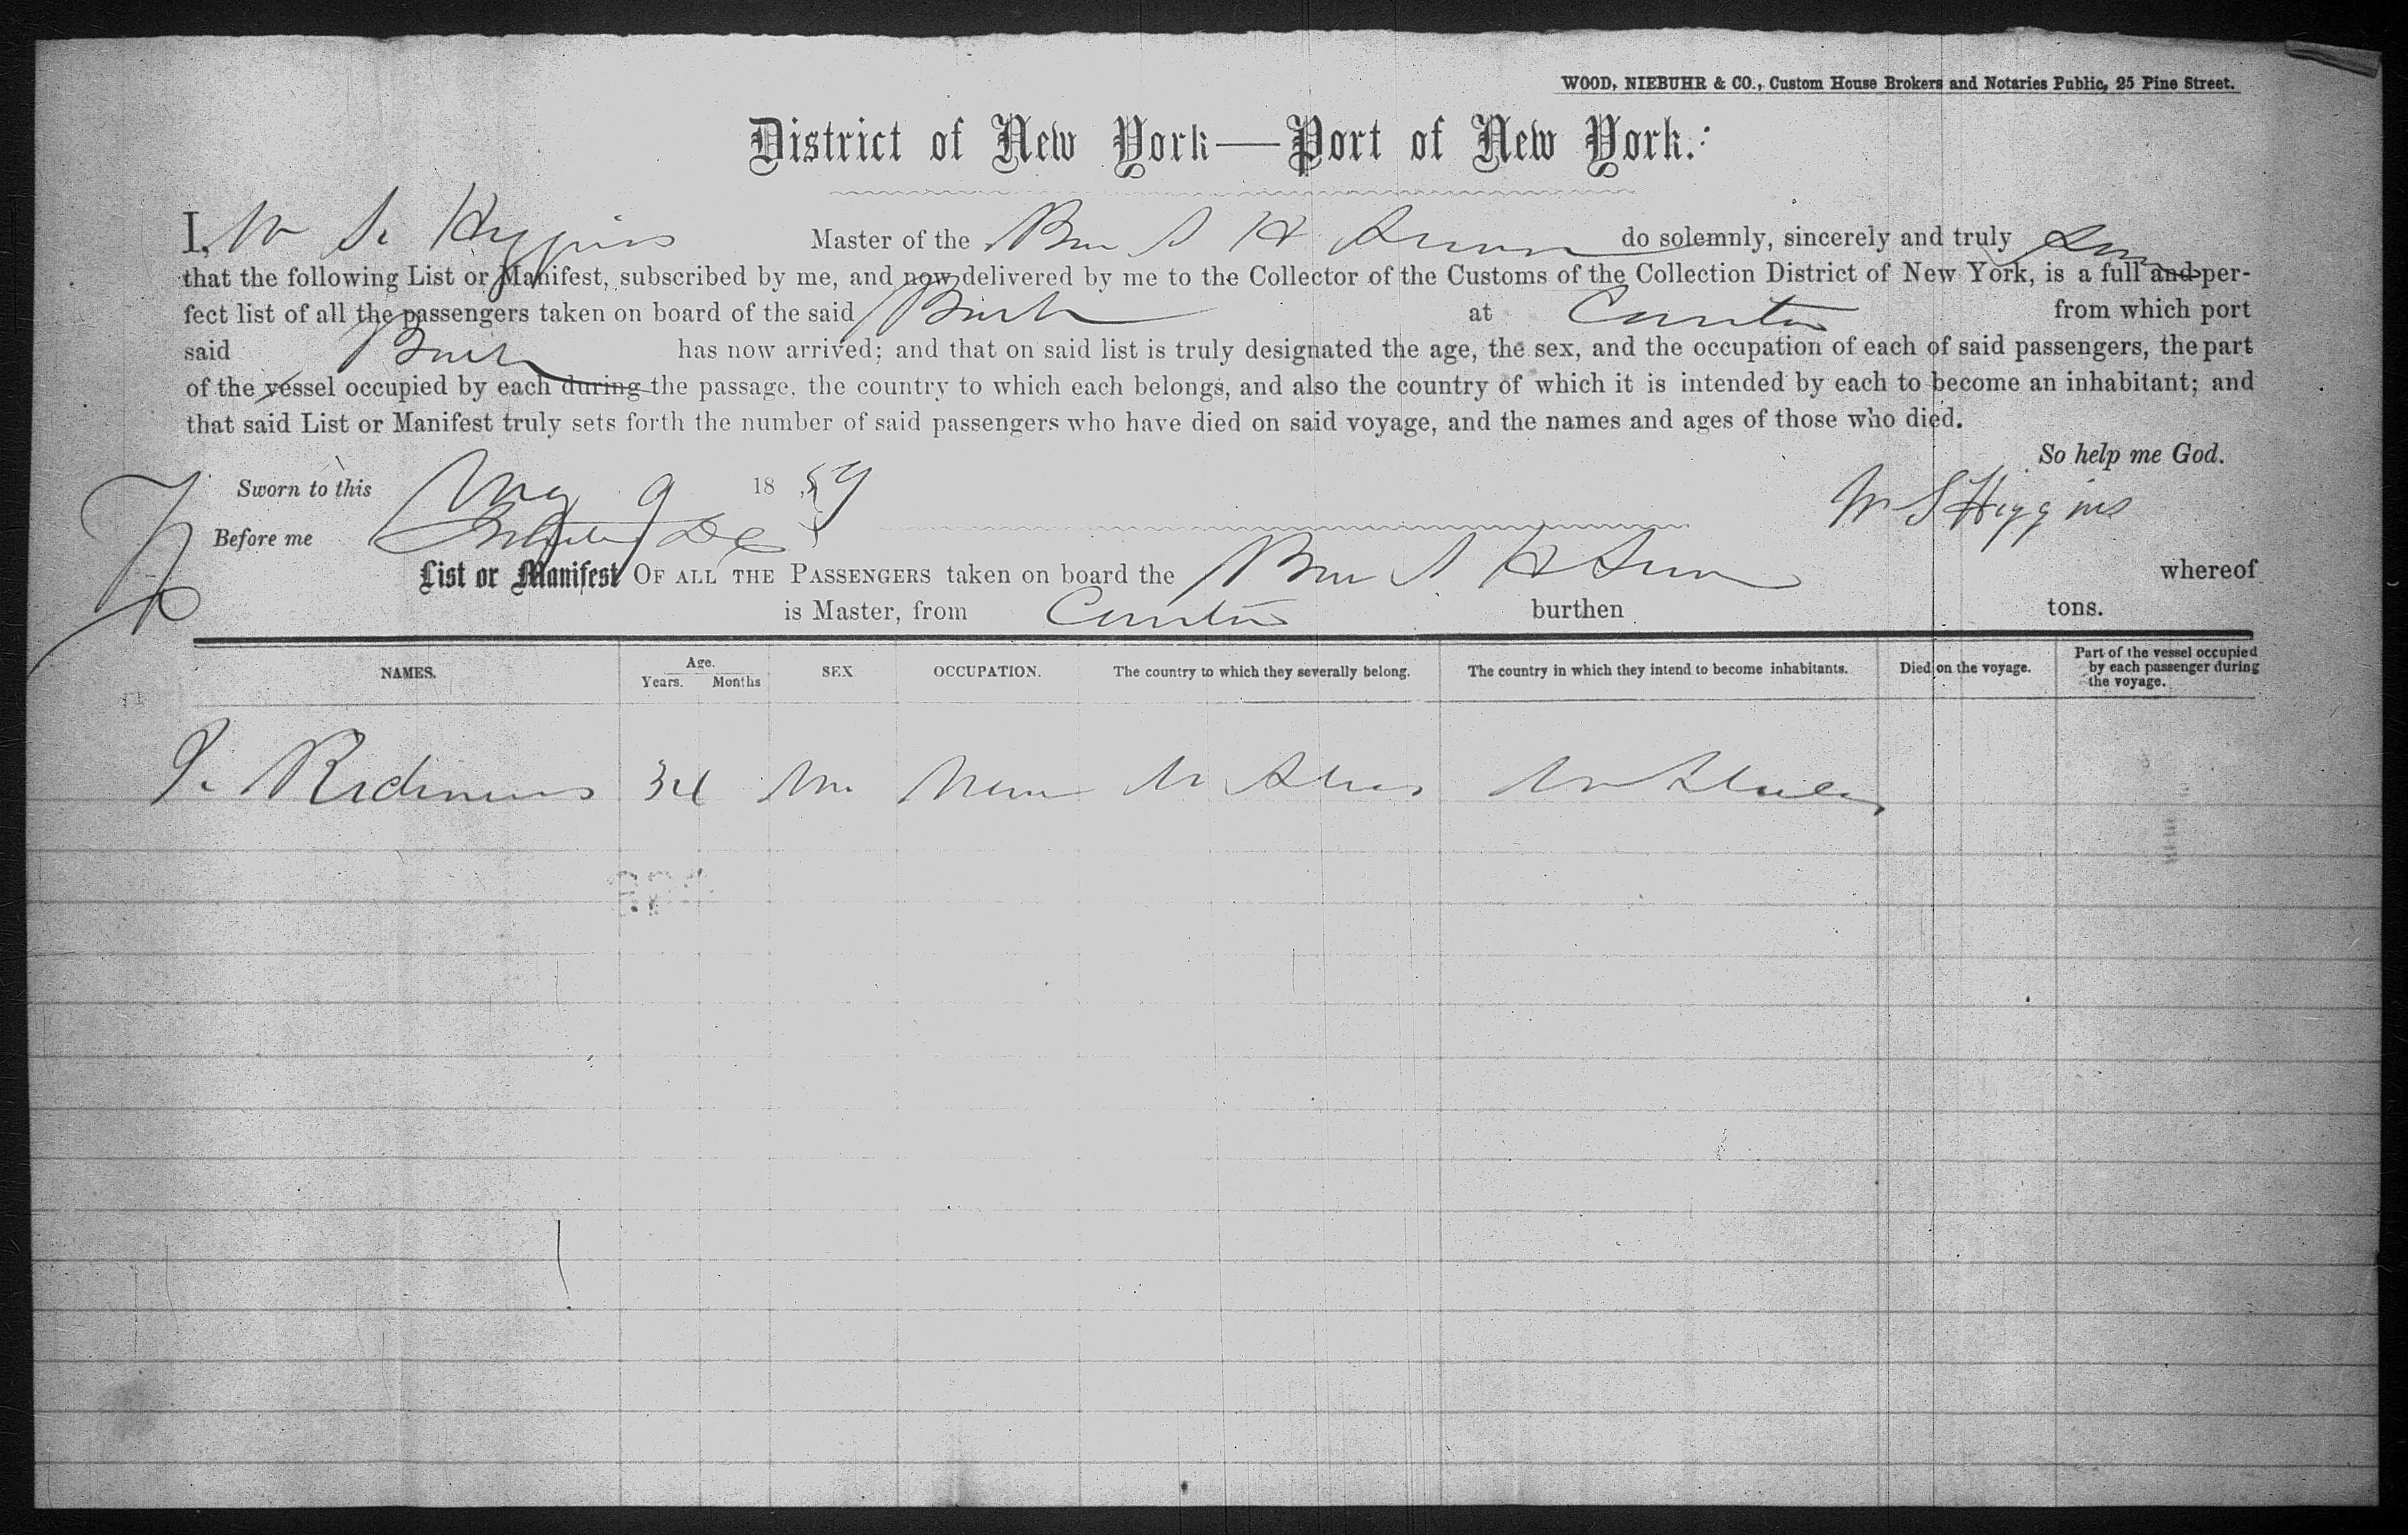 WOOD, NIEBUHR & CO., Custom House Brokers and Notaries Public, 25 Pine Street.
District of New York—Port of New York.
I, W S. Higgins Master of the S H do solemnly, sincerely and truly
that the following List or Manifest, subscribed by me, and now delivered by me to the Collector of the Customs of the Collection District of New York, is a full and per-
fect list of all the passengers taken on board of the said at from which port
said has now arrived; and that on said list is truly designated the age, the sex, and the occupation of each of said passengers, the part
of the vessel occupied by each during the passage, the country to which each belongs, and also the country of which it is intended by each to become an inhabitant; and
that said List or Manifest truly sets forth the number of said passengers who have died on said voyage, and the names and ages of those who died.
So help me God.
Sworn to this 9 18 89 W S Higgins
Before me
List or Manifest OF ALL THE PASSENGERS taken on board the S H whereof
is Master, from burthen tons.
NAMES. Age. Years. Months SEX OCCUPATION. The country to which they severally belong. The country in which they intend to become inhabitants. Died on the voyage. Part of the vessel occupied by each passenger during the voyage.
34 M